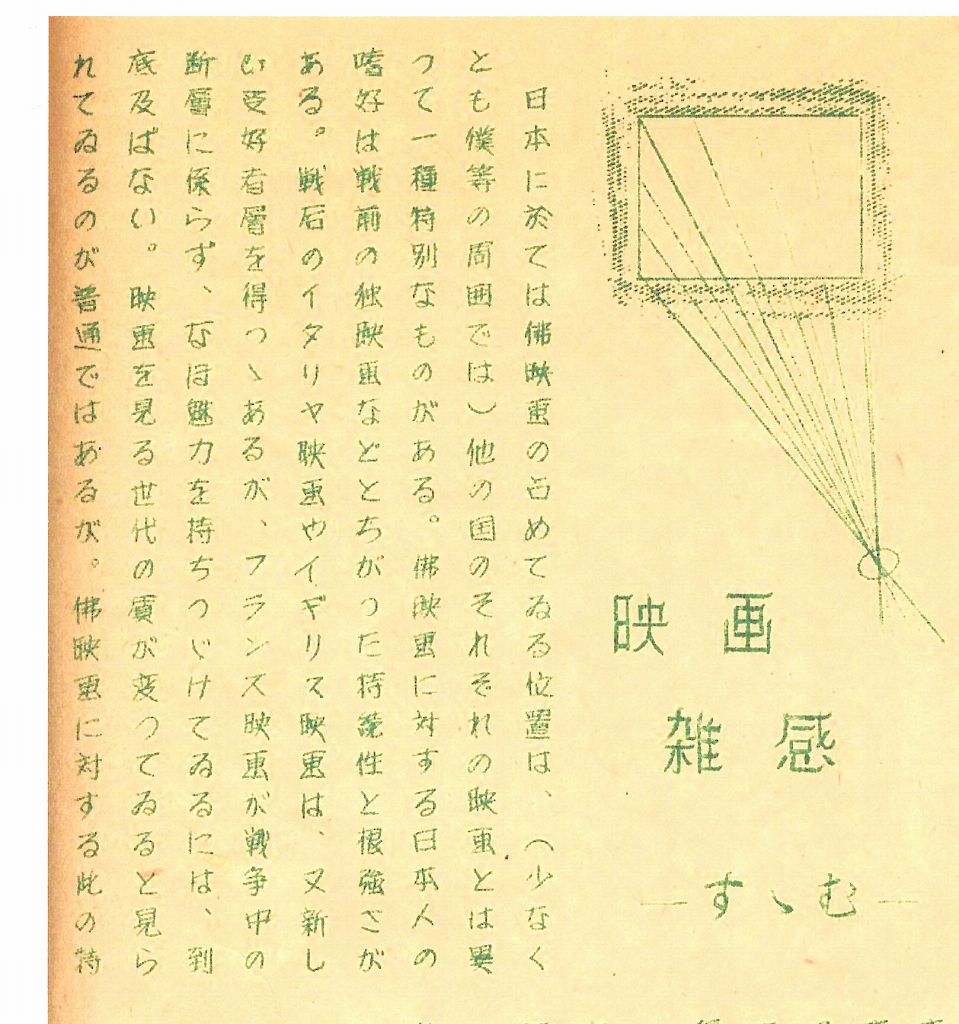 映画
雑感
―すゝむ―
日本に於ては佛映画の占めてゐる位置は、（少なく
とも僕等の周囲では）他の国のそれぞれの映画とは異
つて一種特別なものがある。佛映画に対する日本人の
嗜好は戦前の独映画などとちがつた持続性と根強さが
ある。戦后のイタリヤ映画やイギリス映画は、又新し
い愛好者層を得つゝあるが、フランス映画が戦争中の
断層に係らず、なほ魅力を持ちつゞけてゐるには、到
底及ばない。映画を見る世代の質が変つてゐると見ら
れてゐるのが普通ではあるが。佛映画に対する此の特